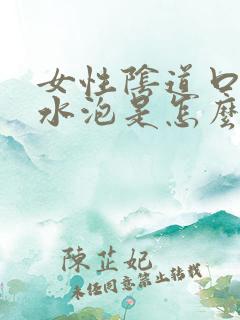 女性陰道口
水泡是怎麼
陳芷妃
未經同意禁止轉載